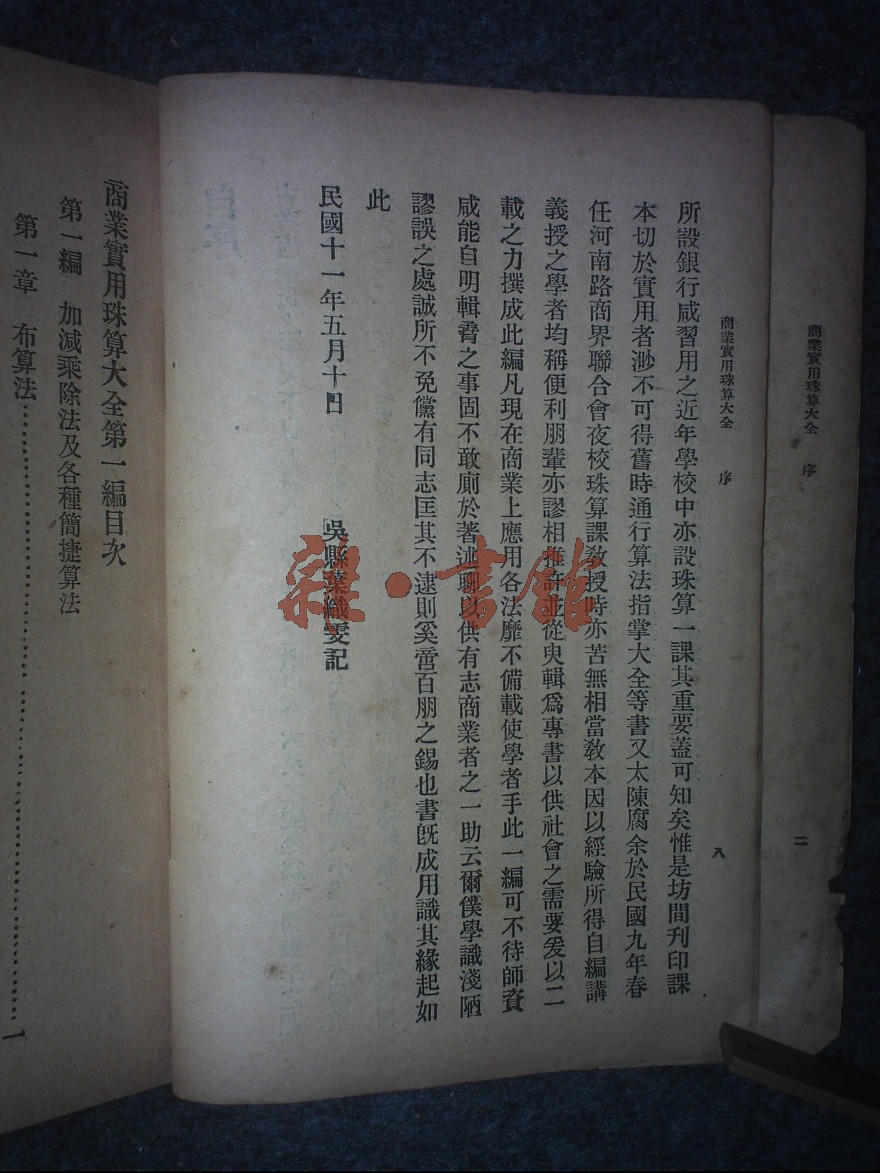 商業實用珠算大全 序
二
商業實用珠算大全 序
八
所設銀行咸習用之近年學校中亦設珠算一課其重要蓋可知矣惟是坊間刋印課
本切於實用者渺不可得舊時通行算法指掌大全等書又太陳腐余於民國九年春
任河南路商界聯合會夜校珠算課教授時亦苦無相當教本因以經驗所得自編講
義授之學者均稱便利朋輩亦謬相推許並從臾輯爲專書以供社會之需要爰以二
載之力撰成此編凡現在商業上應用各法靡不備載使學者手此一編可不待師資
咸能自明輯書之事固不敢廁於著述聊以供有志商業者之一助云爾僕學識淺陋
謬誤之處誠所不免儻有同志匡其不逮則奚啻百朋之錫也書旣成用識其緣起如
此
民國十一年五月十日
吳縣葉織雯記
雜·書館
商業實用珠算大全第一編目次
第一編 加减乘除法及各種簡捷算法
第一章 布算法……………………一